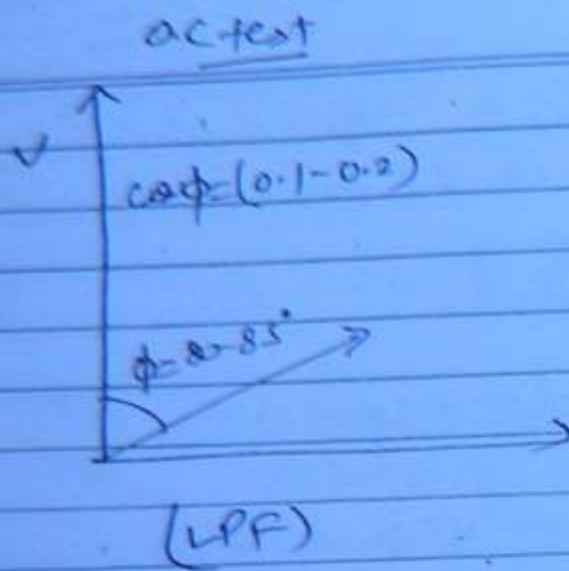 oc test
V
cosφ=(0.1-0.2)
φ=80-85°
(LPF)